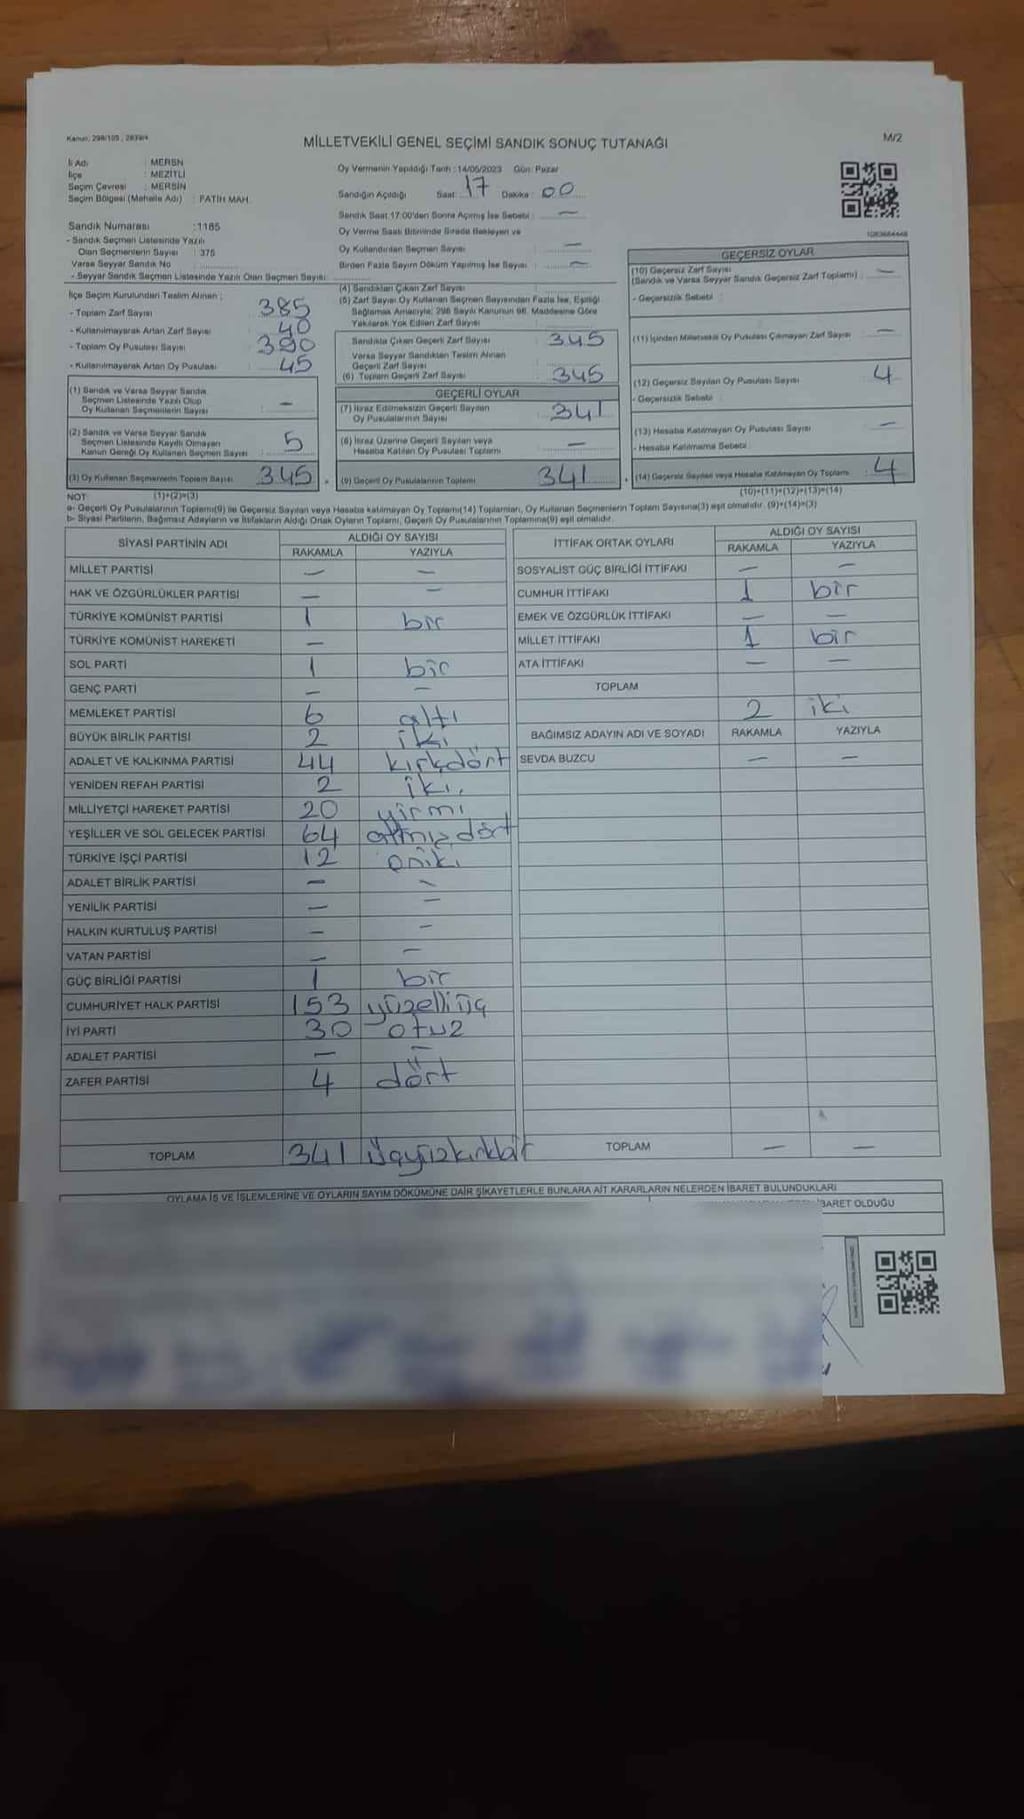 Kanun: 298/105, 2839/4
MİLLETVEKİLİ GENEL SEÇİMİ SANDIK SONUÇ TUTANAĞI
M/2
İl Adı : MERSN
İlçe : MEZİTLİ
Seçim Çevresi : MERSİN
Seçim Bölgesi (Mahalle Adı) : FATİH MAH.
Oy Vermenin Yapıldığı Tarih : 14/05/2023 Gün: Pazar
Sandığın Açıldığı Saat: 17 Dakika: 00
Sandık Saat 17:00'den Sonra Açılmış İse Sebebi : —
Oy Verme Saati Bitiminde Sırada Bekleyen ve
Oy Kullandırılan Seçmen Sayısı : —
Birden Fazla Sayım Döküm Yapılmış İse Sayısı : —
Sandık Numarası : 1165
- Sandık Seçmen Listesinde Yazılı
Olan Seçmenlerin Sayısı : 375
Varsa Seyyar Sandık No
- Seyyar Sandık Seçmen Listesinde Yazılı Olan Seçmen Sayısı:
İlçe Seçim Kurulundan Teslim Alınan :
- Toplam Zarf Sayısı 385
- Kullanılmayarak Artan Zarf Sayısı 40
- Toplam Oy Pusulası Sayısı 390
- Kullanılmayarak Artan Oy Pusulası 45
(1) Sandık ve Varsa Seyyar Sandık
Seçmen Listesinde Yazılı Olup
Oy Kullanan Seçmenlerin Sayısı —
(2) Sandık ve Varsa Seyyar Sandık
Seçmen Listesinde Kayıtlı Olmayan
Kanun Gereği Oy Kullanan Seçmen Sayısı 5
(3) Oy Kullanan Seçmenlerin Toplam Sayısı 345
(4) Sandıktan Çıkan Zarf Sayısı
(5) Zarf Sayısı Oy Kullanan Seçmen Sayısından Fazla İse, Eşitliği
Sağlamak Amacıyla; 298 Sayılı Kanunun 98. Maddesine Göre
Yakılarak Yok Edilen Zarf Sayısı
Sandıkta Çıkan Geçerli Zarf Sayısı 345
Varsa Seyyar Sandıktan Teslim Alınan
Geçerli Zarf Sayısı
(6) Toplam Geçerli Zarf Sayısı 345
GEÇERLİ OYLAR
(7) İtiraz Edilmeksizin Geçerli Sayılan
Oy Pusulalarının Sayısı 341
(8) İtiraz Üzerine Geçerli Sayılan veya
Hesaba Katılan Oy Pusulası Toplamı —
(9) Geçerli Oy Pusulalarının Toplamı 341
GEÇERSİZ OYLAR
(10) Geçersiz Zarf Sayısı
(Sandık ve Varsa Seyyar Sandık Geçersiz Zarf Toplamı) —
- Geçersizlik Sebebi :
(11) İçinden Milletvekili Oy Pusulası Çıkmayan Zarf Sayısı —
(12) Geçersiz Sayılan Oy Pusulası Sayısı 4
- Geçersizlik Sebebi
(13) Hesaba Katılmayan Oy Pusulası Sayısı —
- Hesaba Katılmama Sebebi
(14) Geçersiz Sayılan veya Hesaba Katılmayan Oy Toplamı : 4
NOT: (1)+(2)=(3)
(10)+(11)+(12)+(13)=(14)
a- Geçerli Oy Pusulalarının Toplamı(9) ile Geçersiz Sayılan veya Hesaba katılmayan Oy Toplamı(14) Toplamları, Oy Kullanan Seçmenlerin Toplam Sayısına(3) eşit olmalıdır. (9)+(14)=(3)
b- Siyasi Partilerin, Bağımsız Adayların ve İttifakların Aldığı Ortak Oyların Toplamı, Geçerli Oy Pusulalarının Toplamına(9) eşit olmalıdır.
SİYASİ PARTİNİN ADI ALDIĞI OY SAYISI
RAKAMLA YAZIYLA
MİLLET PARTİSİ — —
HAK VE ÖZGÜRLÜKLER PARTİSİ — —
TÜRKİYE KOMÜNİST PARTİSİ 1 bir
TÜRKİYE KOMÜNİST HAREKETİ —
SOL PARTİ 1 bir
GENÇ PARTİ — —
MEMLEKET PARTİSİ 6 altı
BÜYÜK BİRLİK PARTİSİ 2 iki
ADALET VE KALKINMA PARTİSİ 44 kırkdört
YENİDEN REFAH PARTİSİ 2 iki
MİLLİYETÇİ HAREKET PARTİSİ 20 yirmi
YEŞİLLER VE SOL GELECEK PARTİSİ 64 altmışdört
TÜRKİYE İŞÇİ PARTİSİ 12 oniki
ADALET BİRLİK PARTİSİ — —
YENİLİK PARTİSİ — —
HALKIN KURTULUŞ PARTİSİ — —
VATAN PARTİSİ — —
GÜÇ BİRLİĞİ PARTİSİ 1 bir
CUMHURİYET HALK PARTİSİ 153 yüzelliüç
İYİ PARTİ 30 otuz
ADALET PARTİSİ — —
ZAFER PARTİSİ 4 dört
TOPLAM 341 üçyüzkırkbir
İTTİFAK ORTAK OYLARI ALDIĞI OY SAYISI
RAKAMLA YAZIYLA
SOSYALİST GÜÇ BİRLİĞİ İTTİFAKI — —
CUMHUR İTTİFAKI 1 bir
EMEK VE ÖZGÜRLÜK İTTİFAKI — —
MİLLET İTTİFAKI 1 bir
ATA İTTİFAKI — —
TOPLAM
2 iki
BAĞIMSIZ ADAYIN ADI VE SOYADI RAKAMLA YAZIYLA
SEVDA BUZCU — —
TOPLAM — —
OYLAMA İŞ VE İŞLEMLERİNE VE OYLARIN SAYIM DÖKÜMÜNE DAİR ŞİKAYETLERLE BUNLARA AİT KARARLARIN NELERDEN İBARET BULUNDUKLARI
BARET OLDUĞU